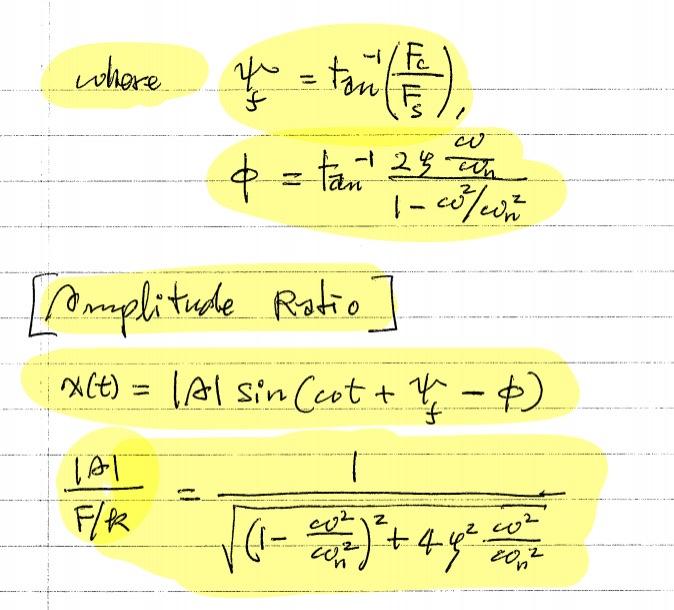 where ψ_f = tan⁻¹(F_c/F_s),
ϕ = tan⁻¹ (2ζ ω/ω_n)/(1 - ω²/ω_n²)
[Amplitude Ratio]
x(t) = |A| sin(ωt + ψ_f - ϕ)
|A|/(F/k) = 1/√((1 - ω²/ω_n²)² + 4ζ² ω²/ω_n²)